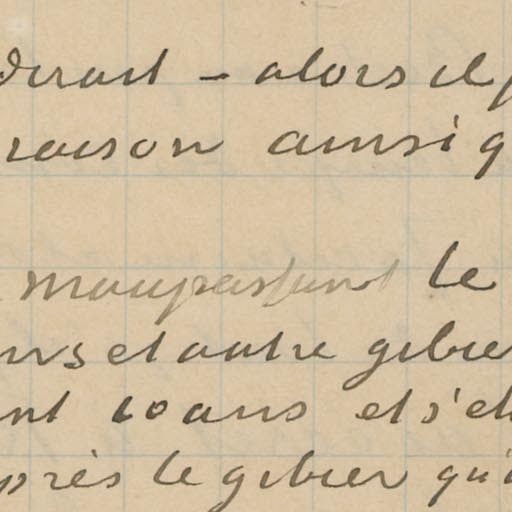 derait - alors il p
raison ainsi q
maupassant le
ns et autre gibie
nt 10 ans et s'et
près le gibier qu'